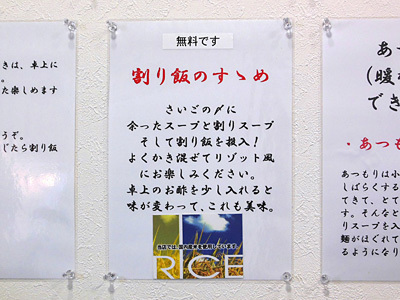 きは、卓上に
。
た楽しめます
うぞ。
じたら割り飯
無料です
割り飯のすゝめ
さいごの〆に
余ったスープと割りスープ
そして割り飯を投入!
よくかき混ぜてリゾット風
にお楽しみください。
卓上のお酢を少し入れると
味が変わって、これも美味。
当店では、国内産米を使用しています。
RICE
あつ
(暖
でき
・あつも
あつもりは小
しばらくする
てきて、とて
す。そんなと
りスープを入
麺がほぐれて
るようになり